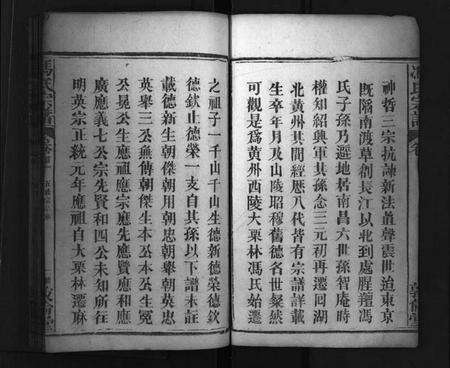 神哲三宗抗諫新法直聲震世迨東京
既陷南渡草創長江以北到處腥羶馮
氏子孫乃遷地居南昌六世孫智庵時
權知紹興軍其孫念三元初再遷回湖
北黃州其間經歷八代皆有宗譜詳載
生卒年月及山陵昭穆舊德名世粲然
可觀是為黃州西陵大栗林馮氏始遷
之祖子一千山千山生德新德榮德欽
德欽止德榮一支自其孫以下譜未註
載德新生朝傑朝用朝忠朝舉朝英忠
英舉三公無傳朝傑生本公本公生冕
公晃公生應祖應宗應先應賢應和應
廣應義七公宗先賢和四公未知所在
明英宗正統元年應祖自大栗林遷麻
馮氏宗譜